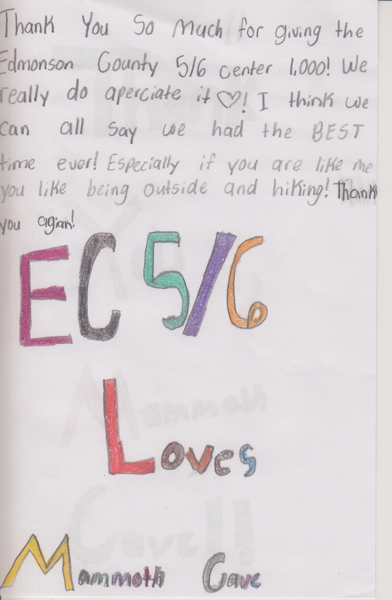 Thank You So Much for giving the
Edmonson County 5/6 center 1,000! We
really do aperciate it ♡! I think we
can all say we had the BEST
time ever! Especially if you are like me
you like being outside and hiking! Thank
you agian!
EC 5/6
Loves
Mammoth Cave